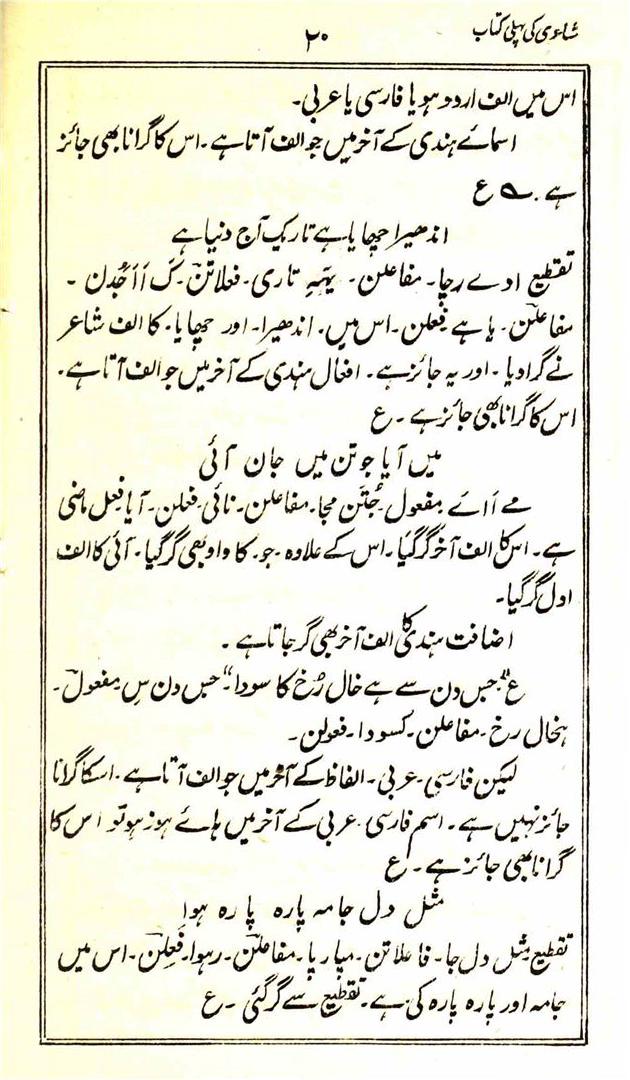 شاعری کی پہلی کتاب
۲۰
اس میں الف اردو ہو یا فارسی یا عربی۔
اسمائے ہندی کے آخر میں جو الف آتا ہے۔ اس کا گرانا بھی جائز
ہے۔ ع
اندھیرا چھایا ہے تاریک آج دنیا ہے
تقطیع ادے رچا۔ مفاعلن۔ یہہِ تاری۔ فعلاتن۔ کَ اَاجُدن۔
مفاعلن۔ یا ہے فعلن۔ اس میں۔ اندھیرا۔ اور چھایا۔ کا الف شاعر
نے گرا دیا۔ اور یہ جائز ہے۔ افعال ہندی کے آخر میں جو الف آتا ہے۔
اس کا گرانا بھی جائز ہے۔ ع
میں آیا جو تن میں جان آئی
مے اَاے مفعول۔ جُتَن مجا۔ مفاعلن۔ نائی۔ فعلن۔ آیا فعل ماضی
ہے۔ اس کا الف آخر گر گیا۔ اس کے علاوہ۔ جو۔ کا واو بھی گر گیا۔ آئی کا الف
اول گر گیا۔
اضافت ہندی کا الف آخر بھی گر جاتا ہے۔
ع "جس دن سے ہے خال رُخ کا سودا" جس دن سِ مفعول۔
ہخال رخ۔ مفاعلن۔ کسودا۔ فعولن۔
لیکن فارسی۔ عربی۔ الفاظ کے آخر میں جو الف آتا ہے۔ اسکا گرانا
جائز نہیں ہے۔ اسم فارسی۔ عربی کے آخر میں ہائے ہوز ہو تو اس کا
گرانا بھی جائز ہے۔ ع
مثل دل جامہ پارہ پارہ ہوا
تقطیع مثل دل جا۔ فاعلاتن۔ مپارپا۔ مفاعلن۔ رہوا۔ فَعِلن۔ اس میں
جامہ اور پارہ پارہ کی ہے۔ تقطیع سے گر گئی۔ ع